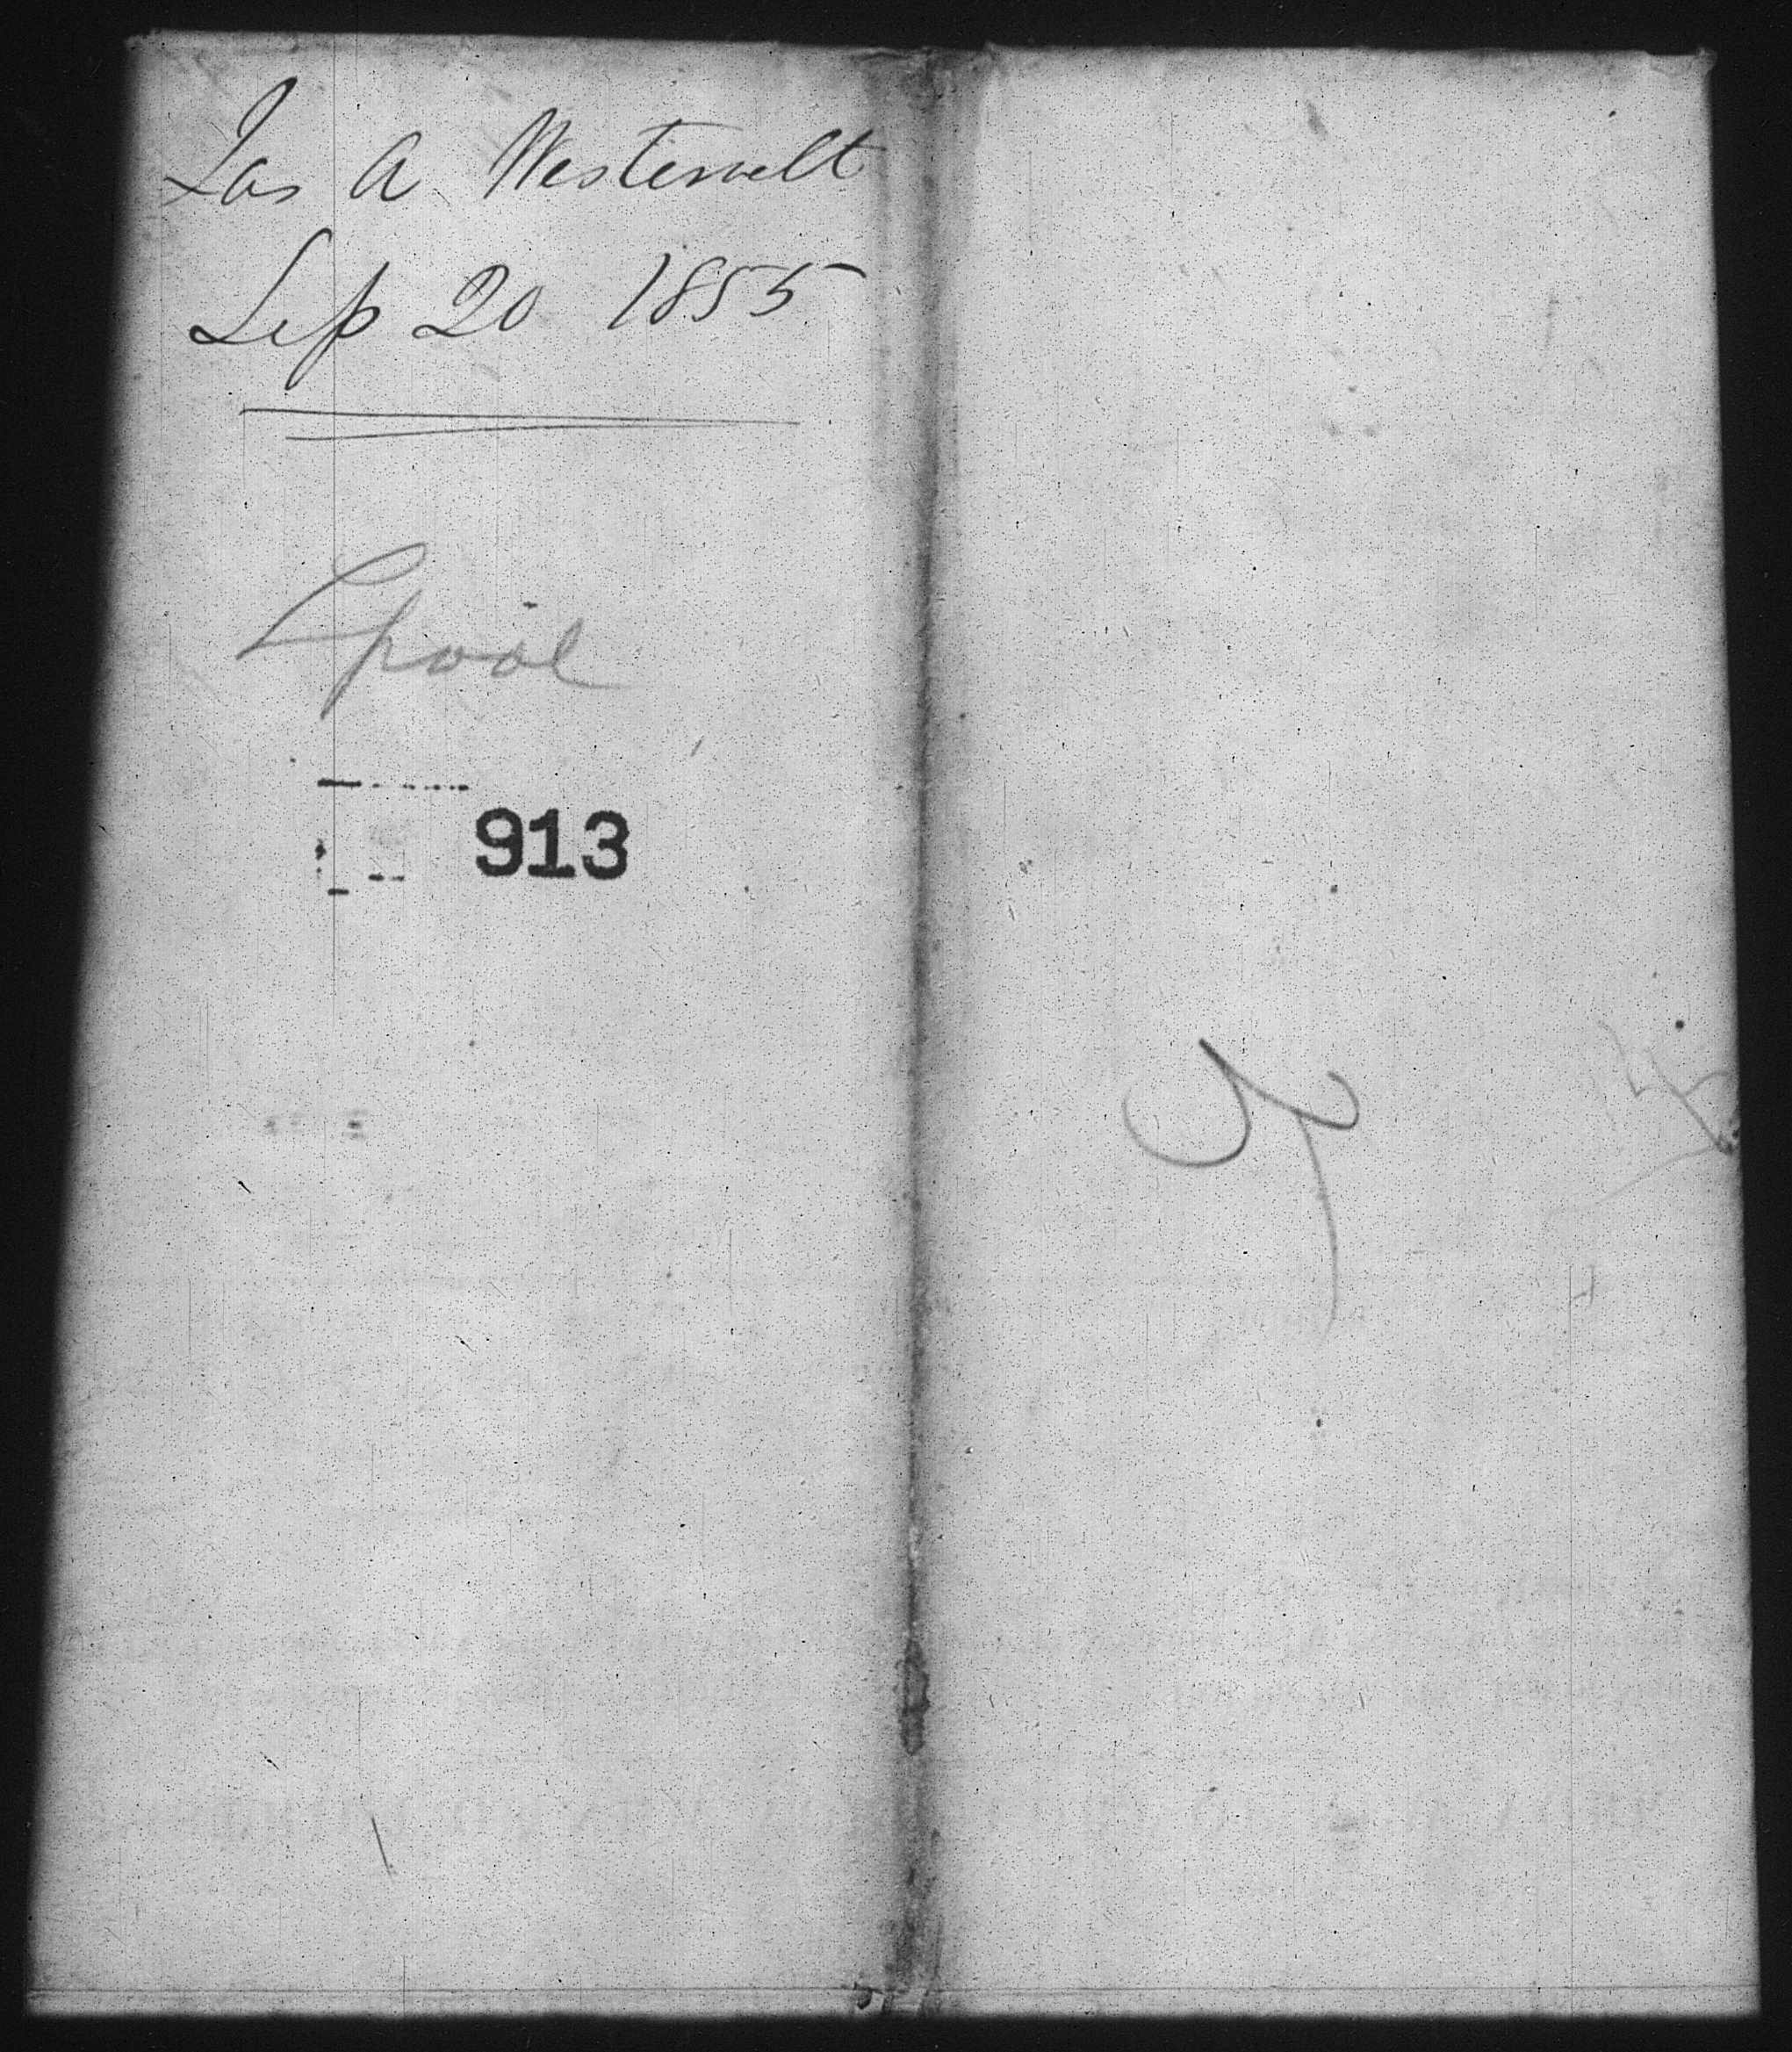 Jas A Westervelt
Sep 20 1855
Lpool
913